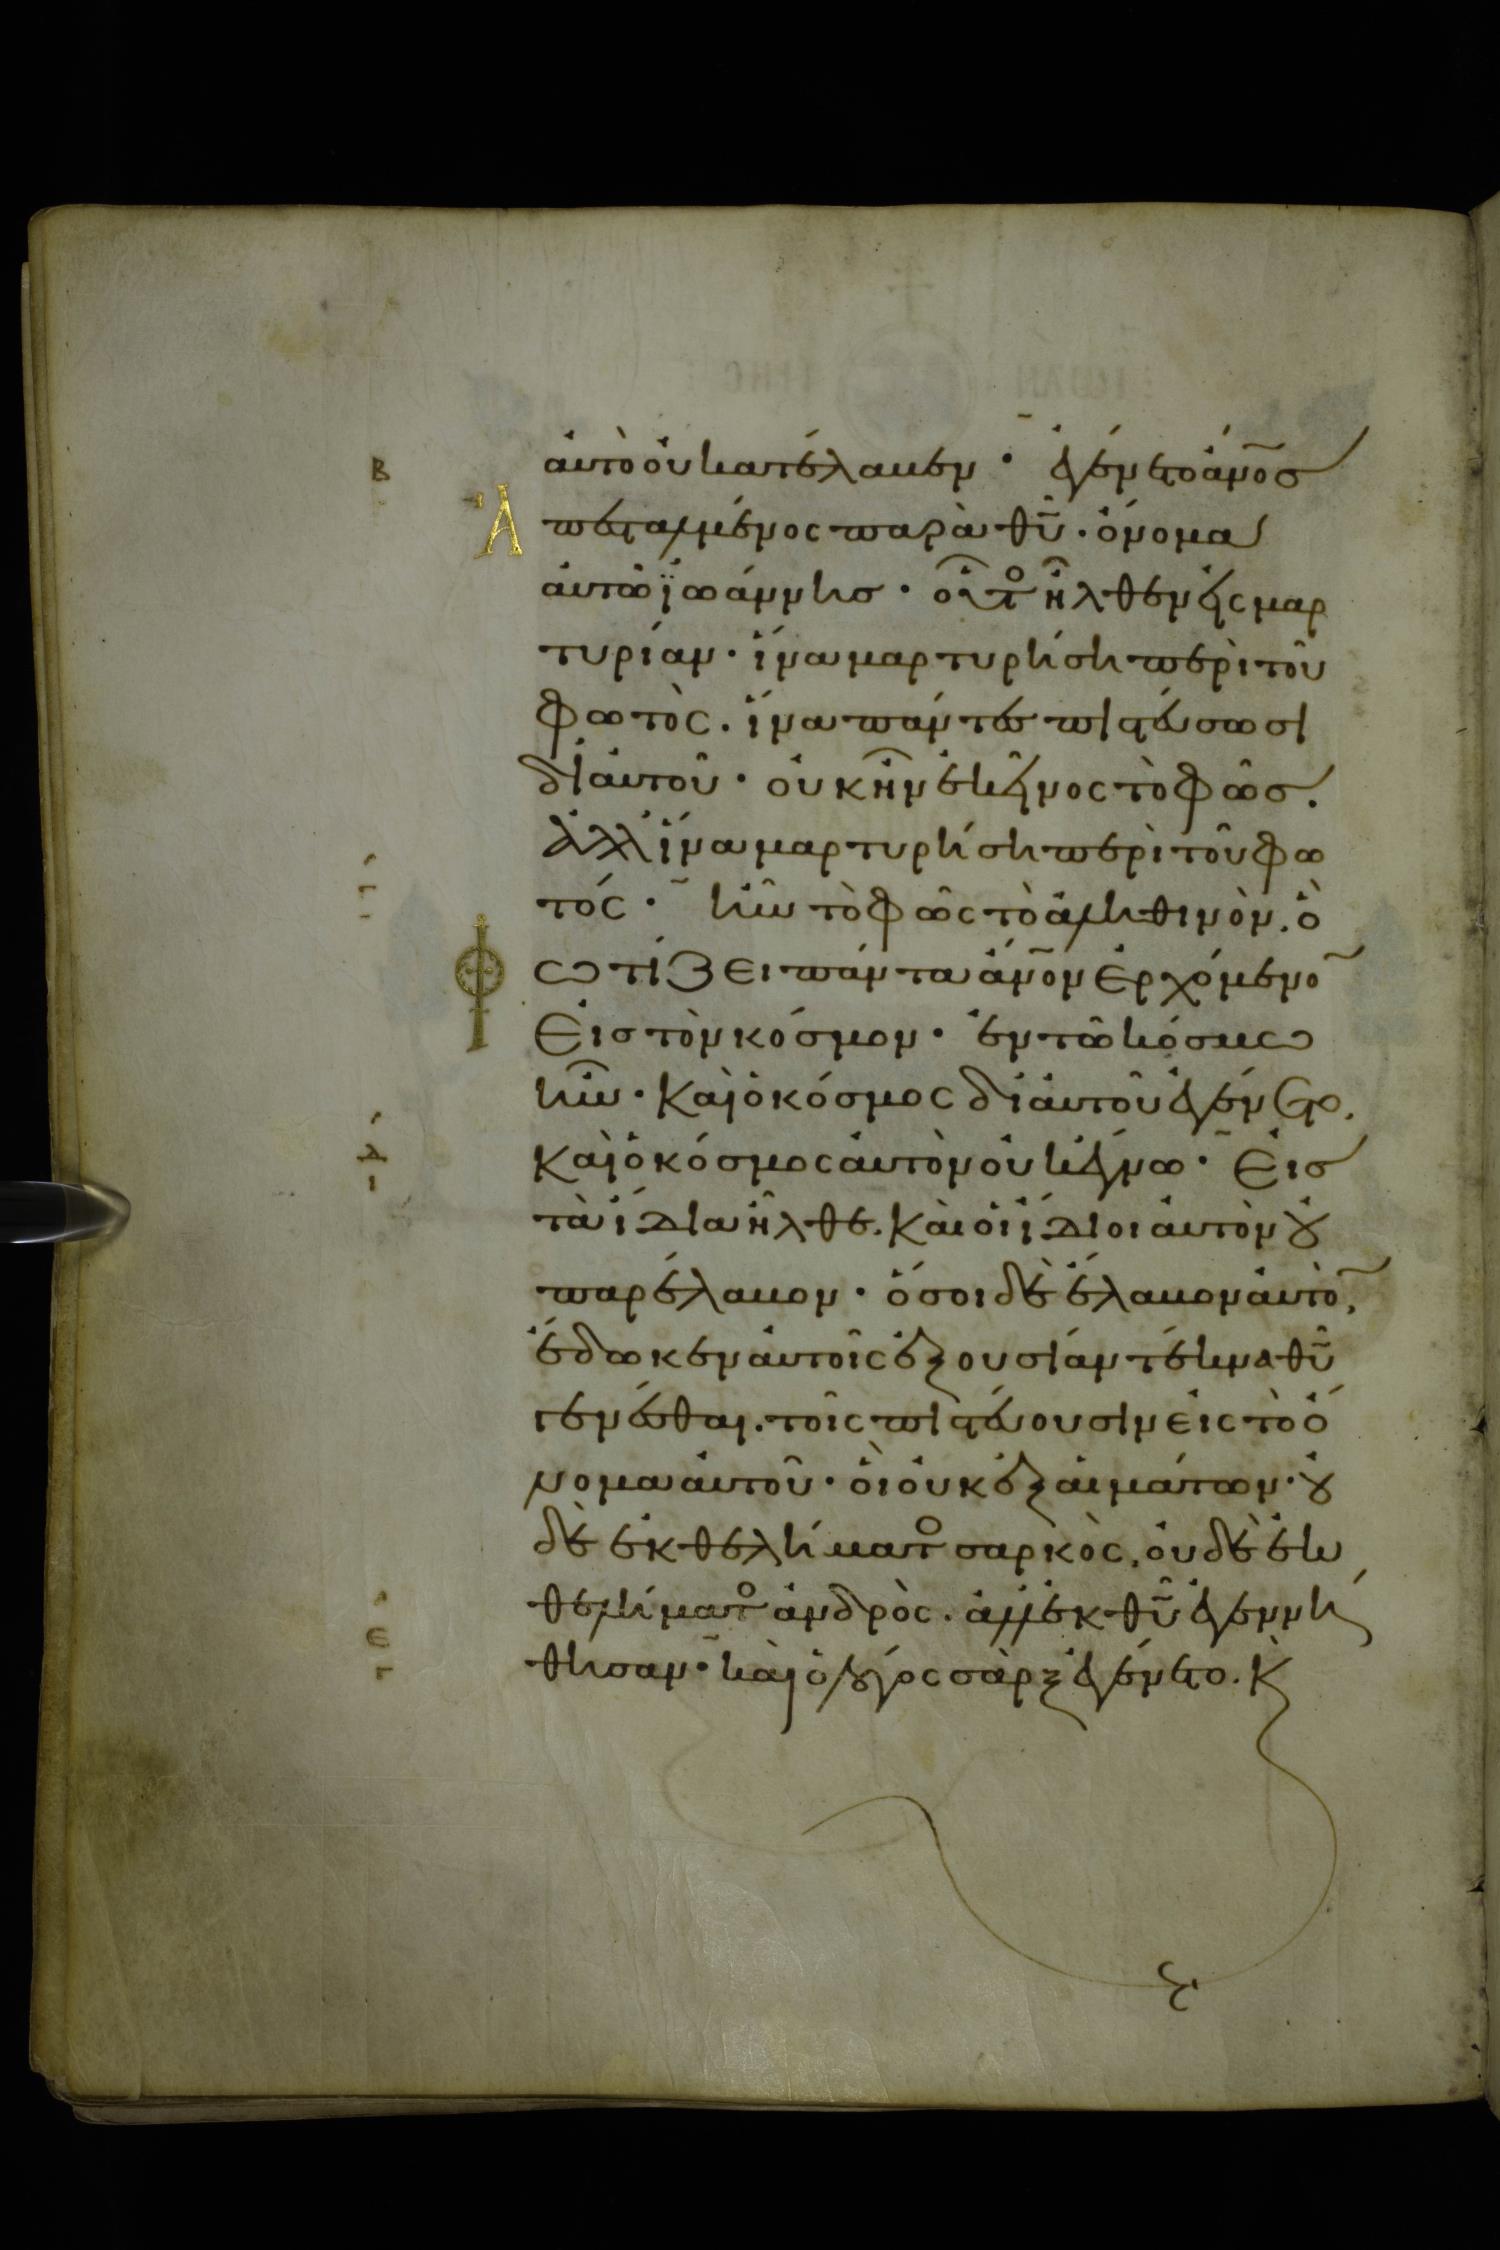 Β
αὐτὸ οὐ κατέλαβεν· ἐγένετο ἄν̅ο̅ς
Ἀ πεσταλμένος παρὰ θ̅υ̅· ὄνομα
αὐτῶ ϊωάννης· οὗτος ἦλθεν εἰς μαρ
τυρίαν· ἵνα μαρτυρήση περὶ τοῦ
φωτὸς. ἵνα πάντες πιστεύσωσι
δι αὐτοῦ· οὐκ ἦν ἐκεῖνος τὸ φῶς.
ἀλλ ἵνα μαρτυρήση περὶ τοῦ φω
Γ τός· ἦν τὸ φῶς τὸ ἀληθινὸν. ὃ
Φ ωτίζει πάντα ἄν̅ο̅ν ἐρχόμενο̅
εἰς τὸν κόσμον· ἐν τῶ κόσμω
ἦν· καὶ ὁ κόσμος δι αὐτοῦ ἐγένετο.
Δ καὶ ὁ κόσμος αὐτὸν οὐκ ἔγνω· εἰς
τὰ ἴδια ἦλθε. καὶ οἱ ἴδιοι αὐτὸν οὐ
παρέλαβον· ὅσοι δὲ ἔλαβον αὐτὸ̅,
ἔδωκεν αὐτοῖς ἐξουσίαν τέκνα θ̅υ̅
γενέσθαι. τοῖς πιστεύουσιν εἰς τὸ ὄ
νομα αὐτοῦ· οἳ οὐκ ἐξ αἱμάτων· οὐ
δὲ ἐκ θελήματος σαρκὸς, οὐδὲ ἐκ
θελήματος ἀνδρὸς. ἀλλ ἐκ θ̅υ̅ ἐγεννή
Ε θησαν· καὶ ὁ λόγος σὰρξ ἐγένετο. κ̀